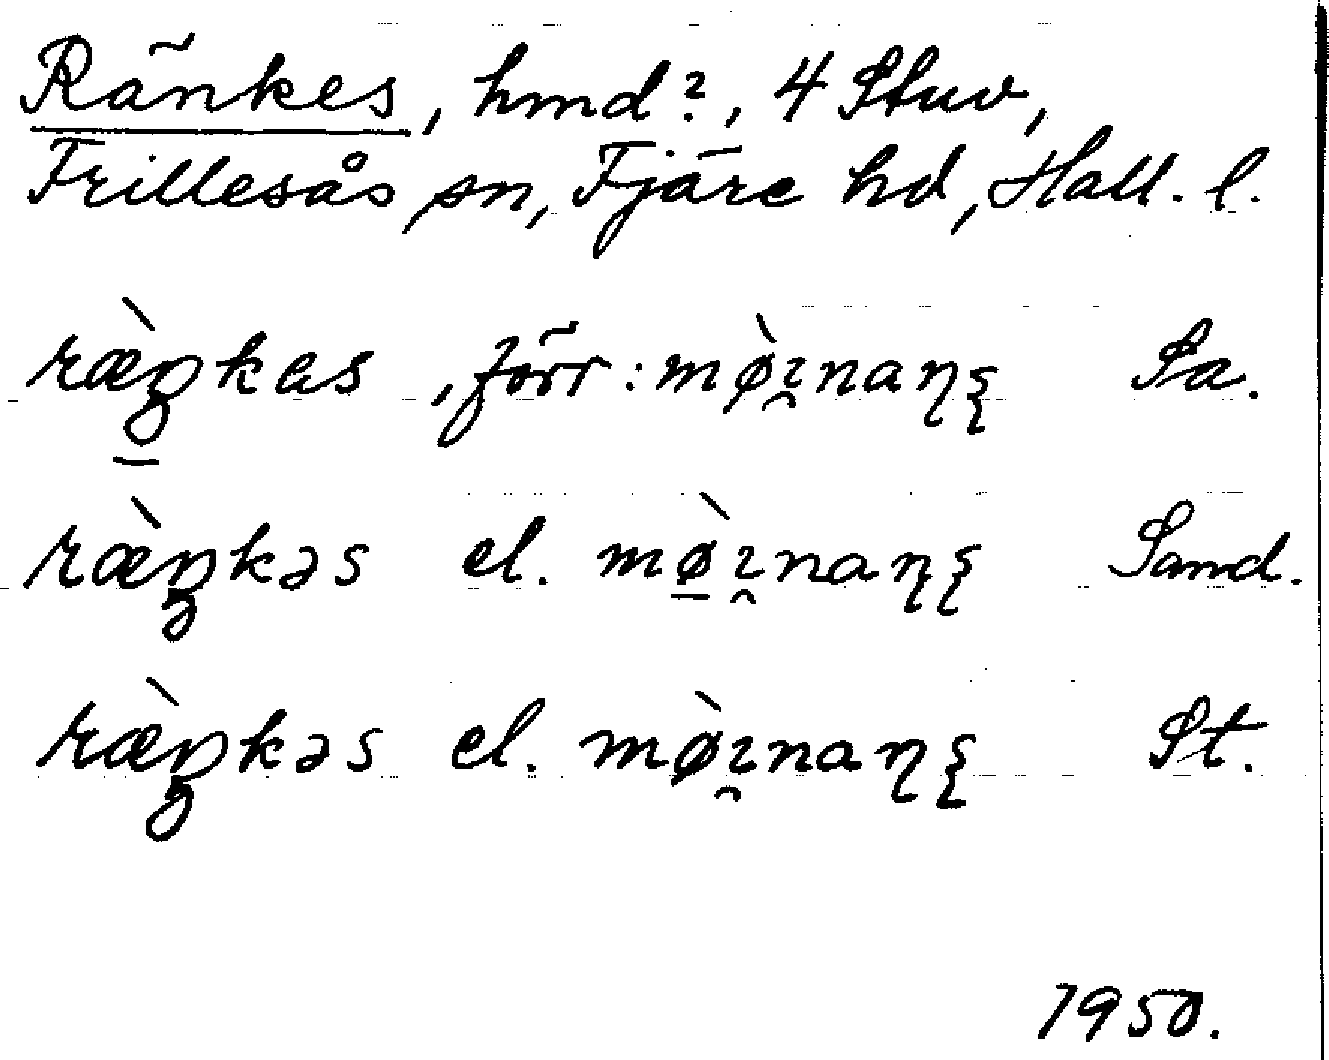 Ränkes, hmd?, 4 Stuv,
Frillesås sn, Fjäre hd, Hall. l.
ræ̀ŋkes , förr: mø̀ɪ̯naɳʂ Sa.
ræ̀ŋkəs el. mø̠̀ɪ̯naɳʂ Sand.
ræ̀ŋkəs el. mø̀ɪ̯naɳʂ St.
1950.